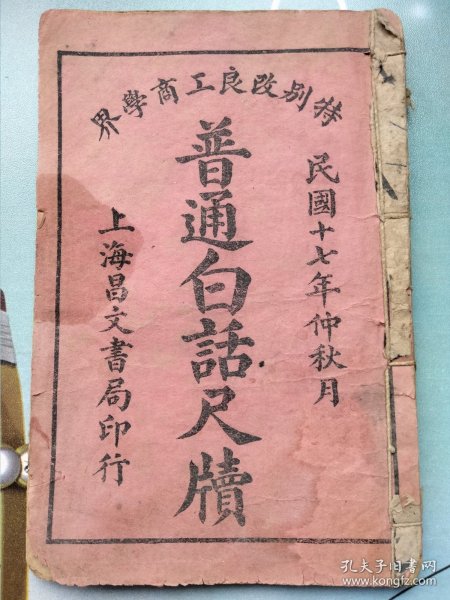 特别改良工商學界
民國十七年仲秋月
普通白話尺牘
上海昌文書局印行
孔夫子旧书网
www.kongfz.com